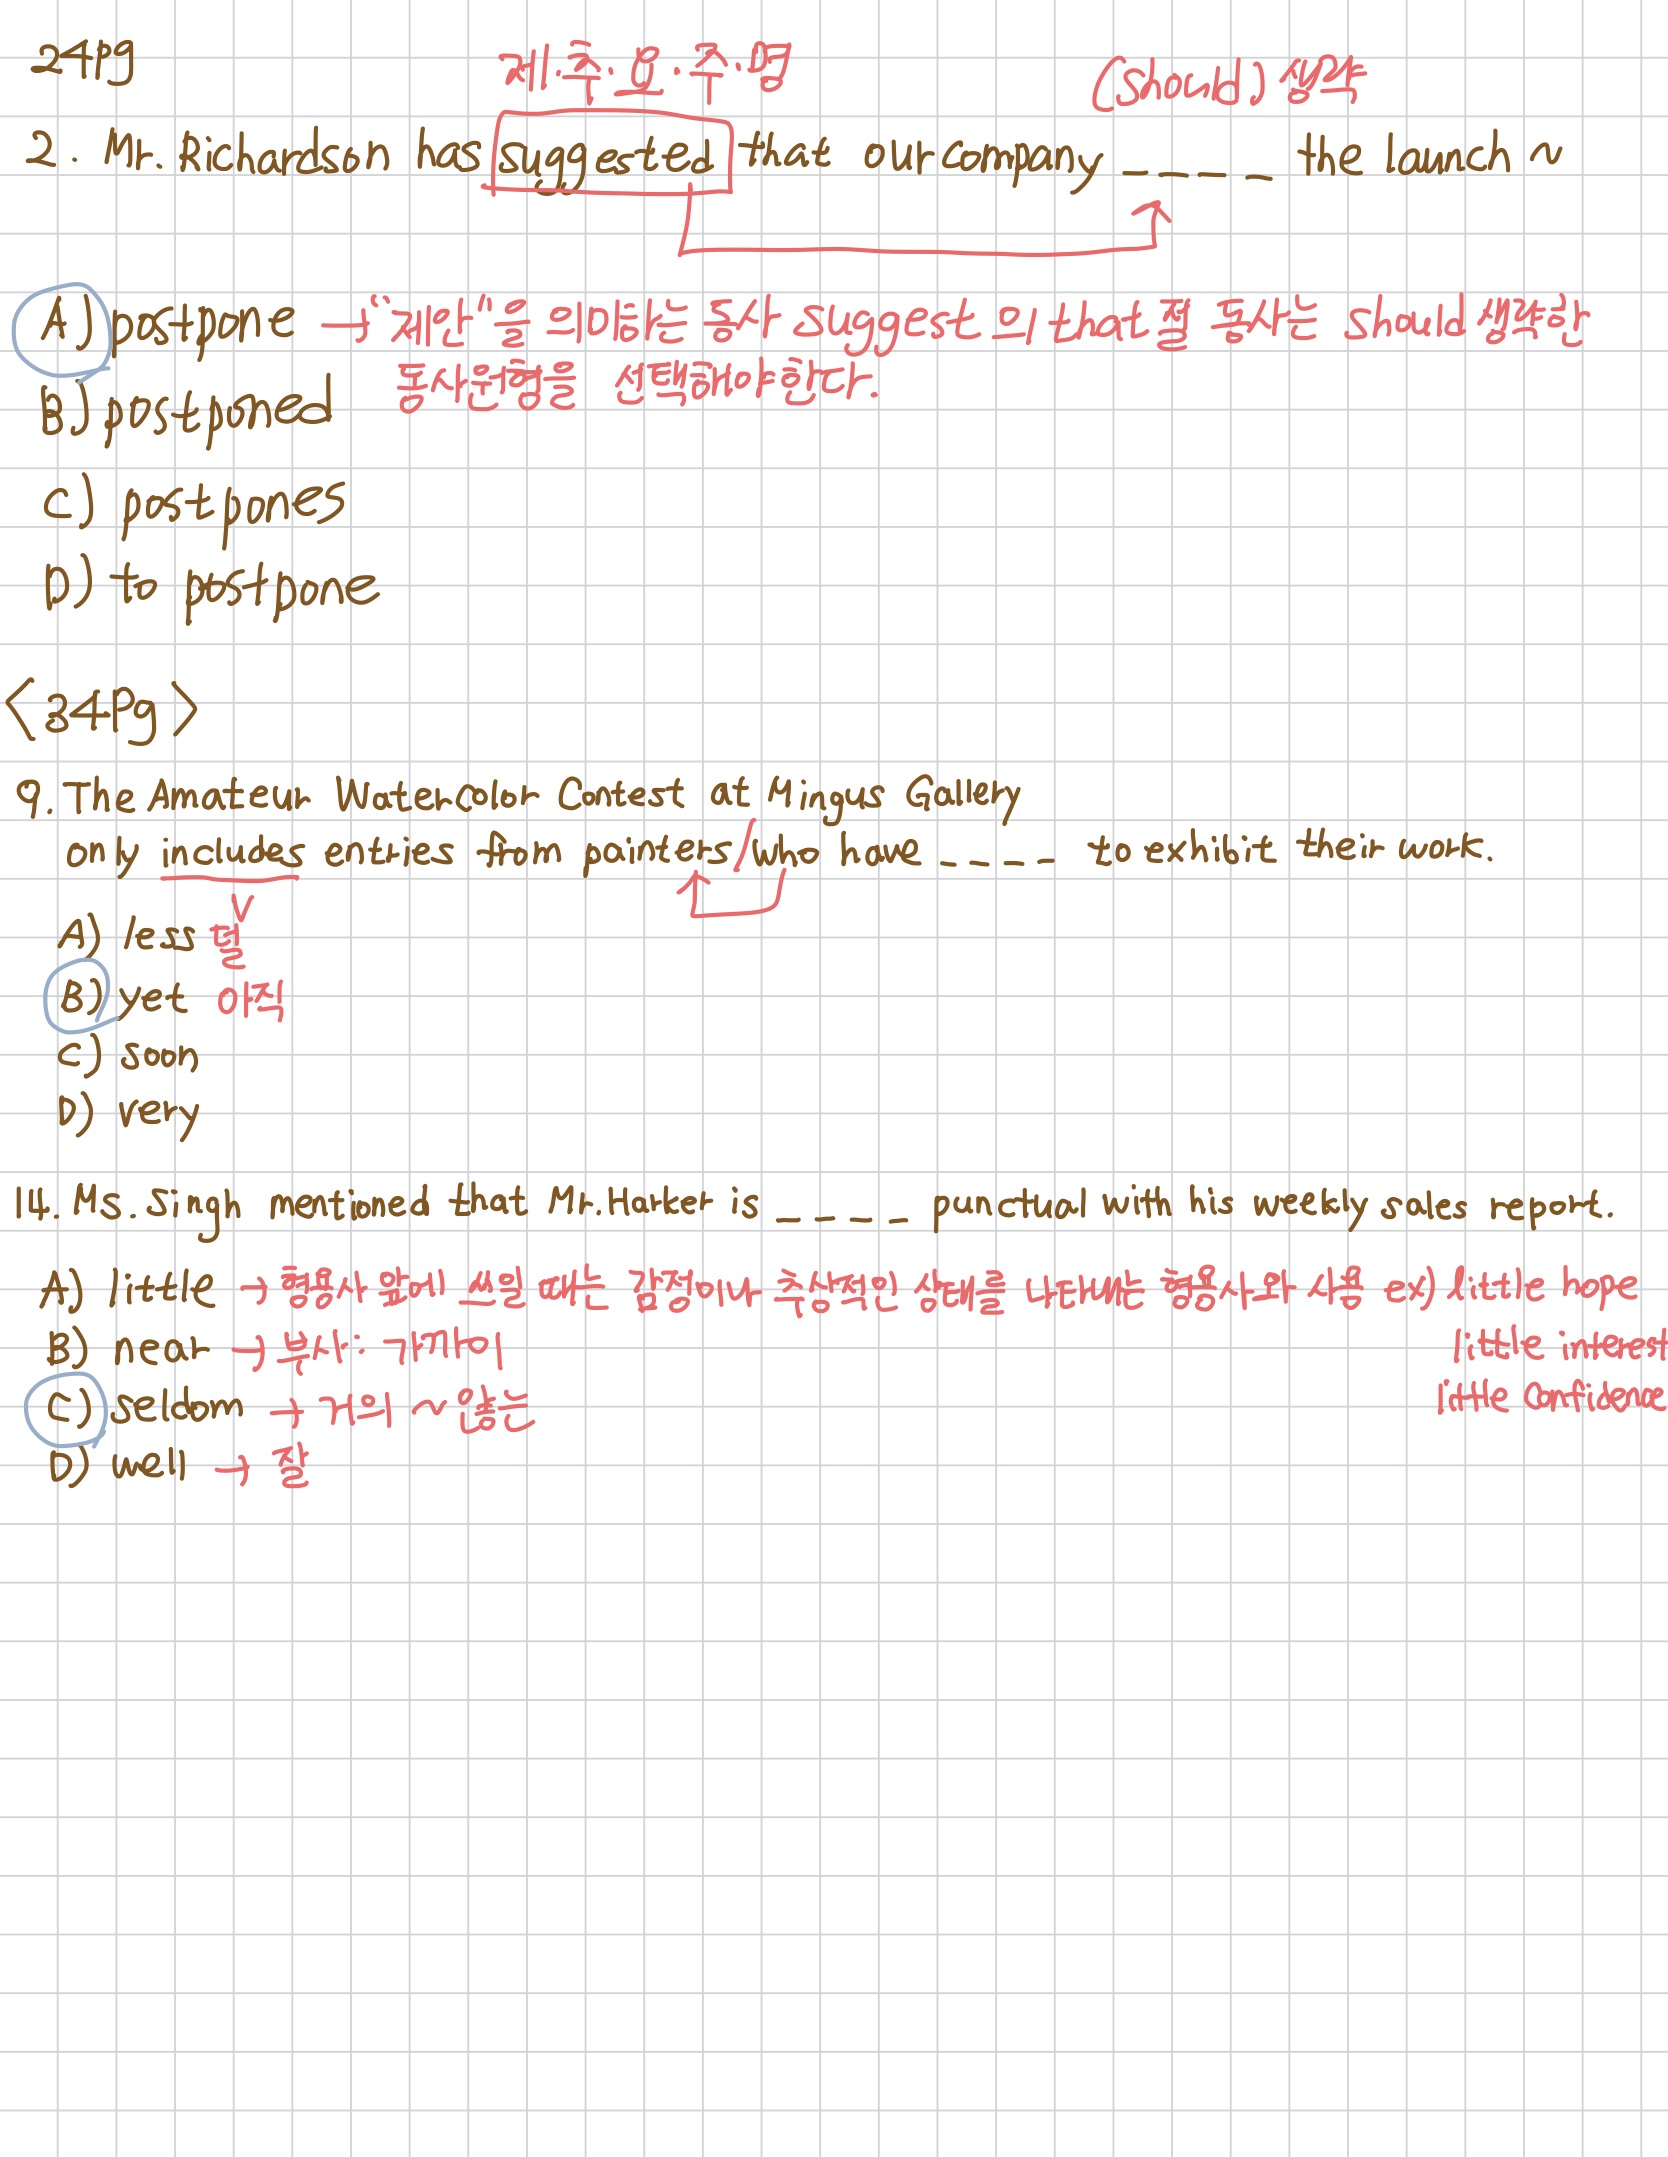 24pg
제·주·요·주·명
(should) 생략
2. Mr. Richardson has suggested that our company _ _ _ _ the launch ~
A) postpone → "제안"을 의미하는 동사 suggest 의 that 절 동사는 should 생략한
동사원형을 선택해야한다.
B) postponed
C) postpones
D) to postpone
<34Pg>
9. The Amateur Watercolor Contest at Mingus Gallery
only includes entries from painters / who have _ _ _ _ to exhibit their work.
V
A) less 덜
B) yet 아직
C) soon
D) very
14. Ms. Singh mentioned that Mr. Harker is _ _ _ _ punctual with his weekly sales report.
A) little → 형용사 앞에 쓰일 때는 감정이나 추상적인 상태를 나타내는 형용사와 사용 ex) little hope
B) near → 부사: 가까이
little interest
C) seldom → 거의 ~않는
little confidence
D) well → 잘